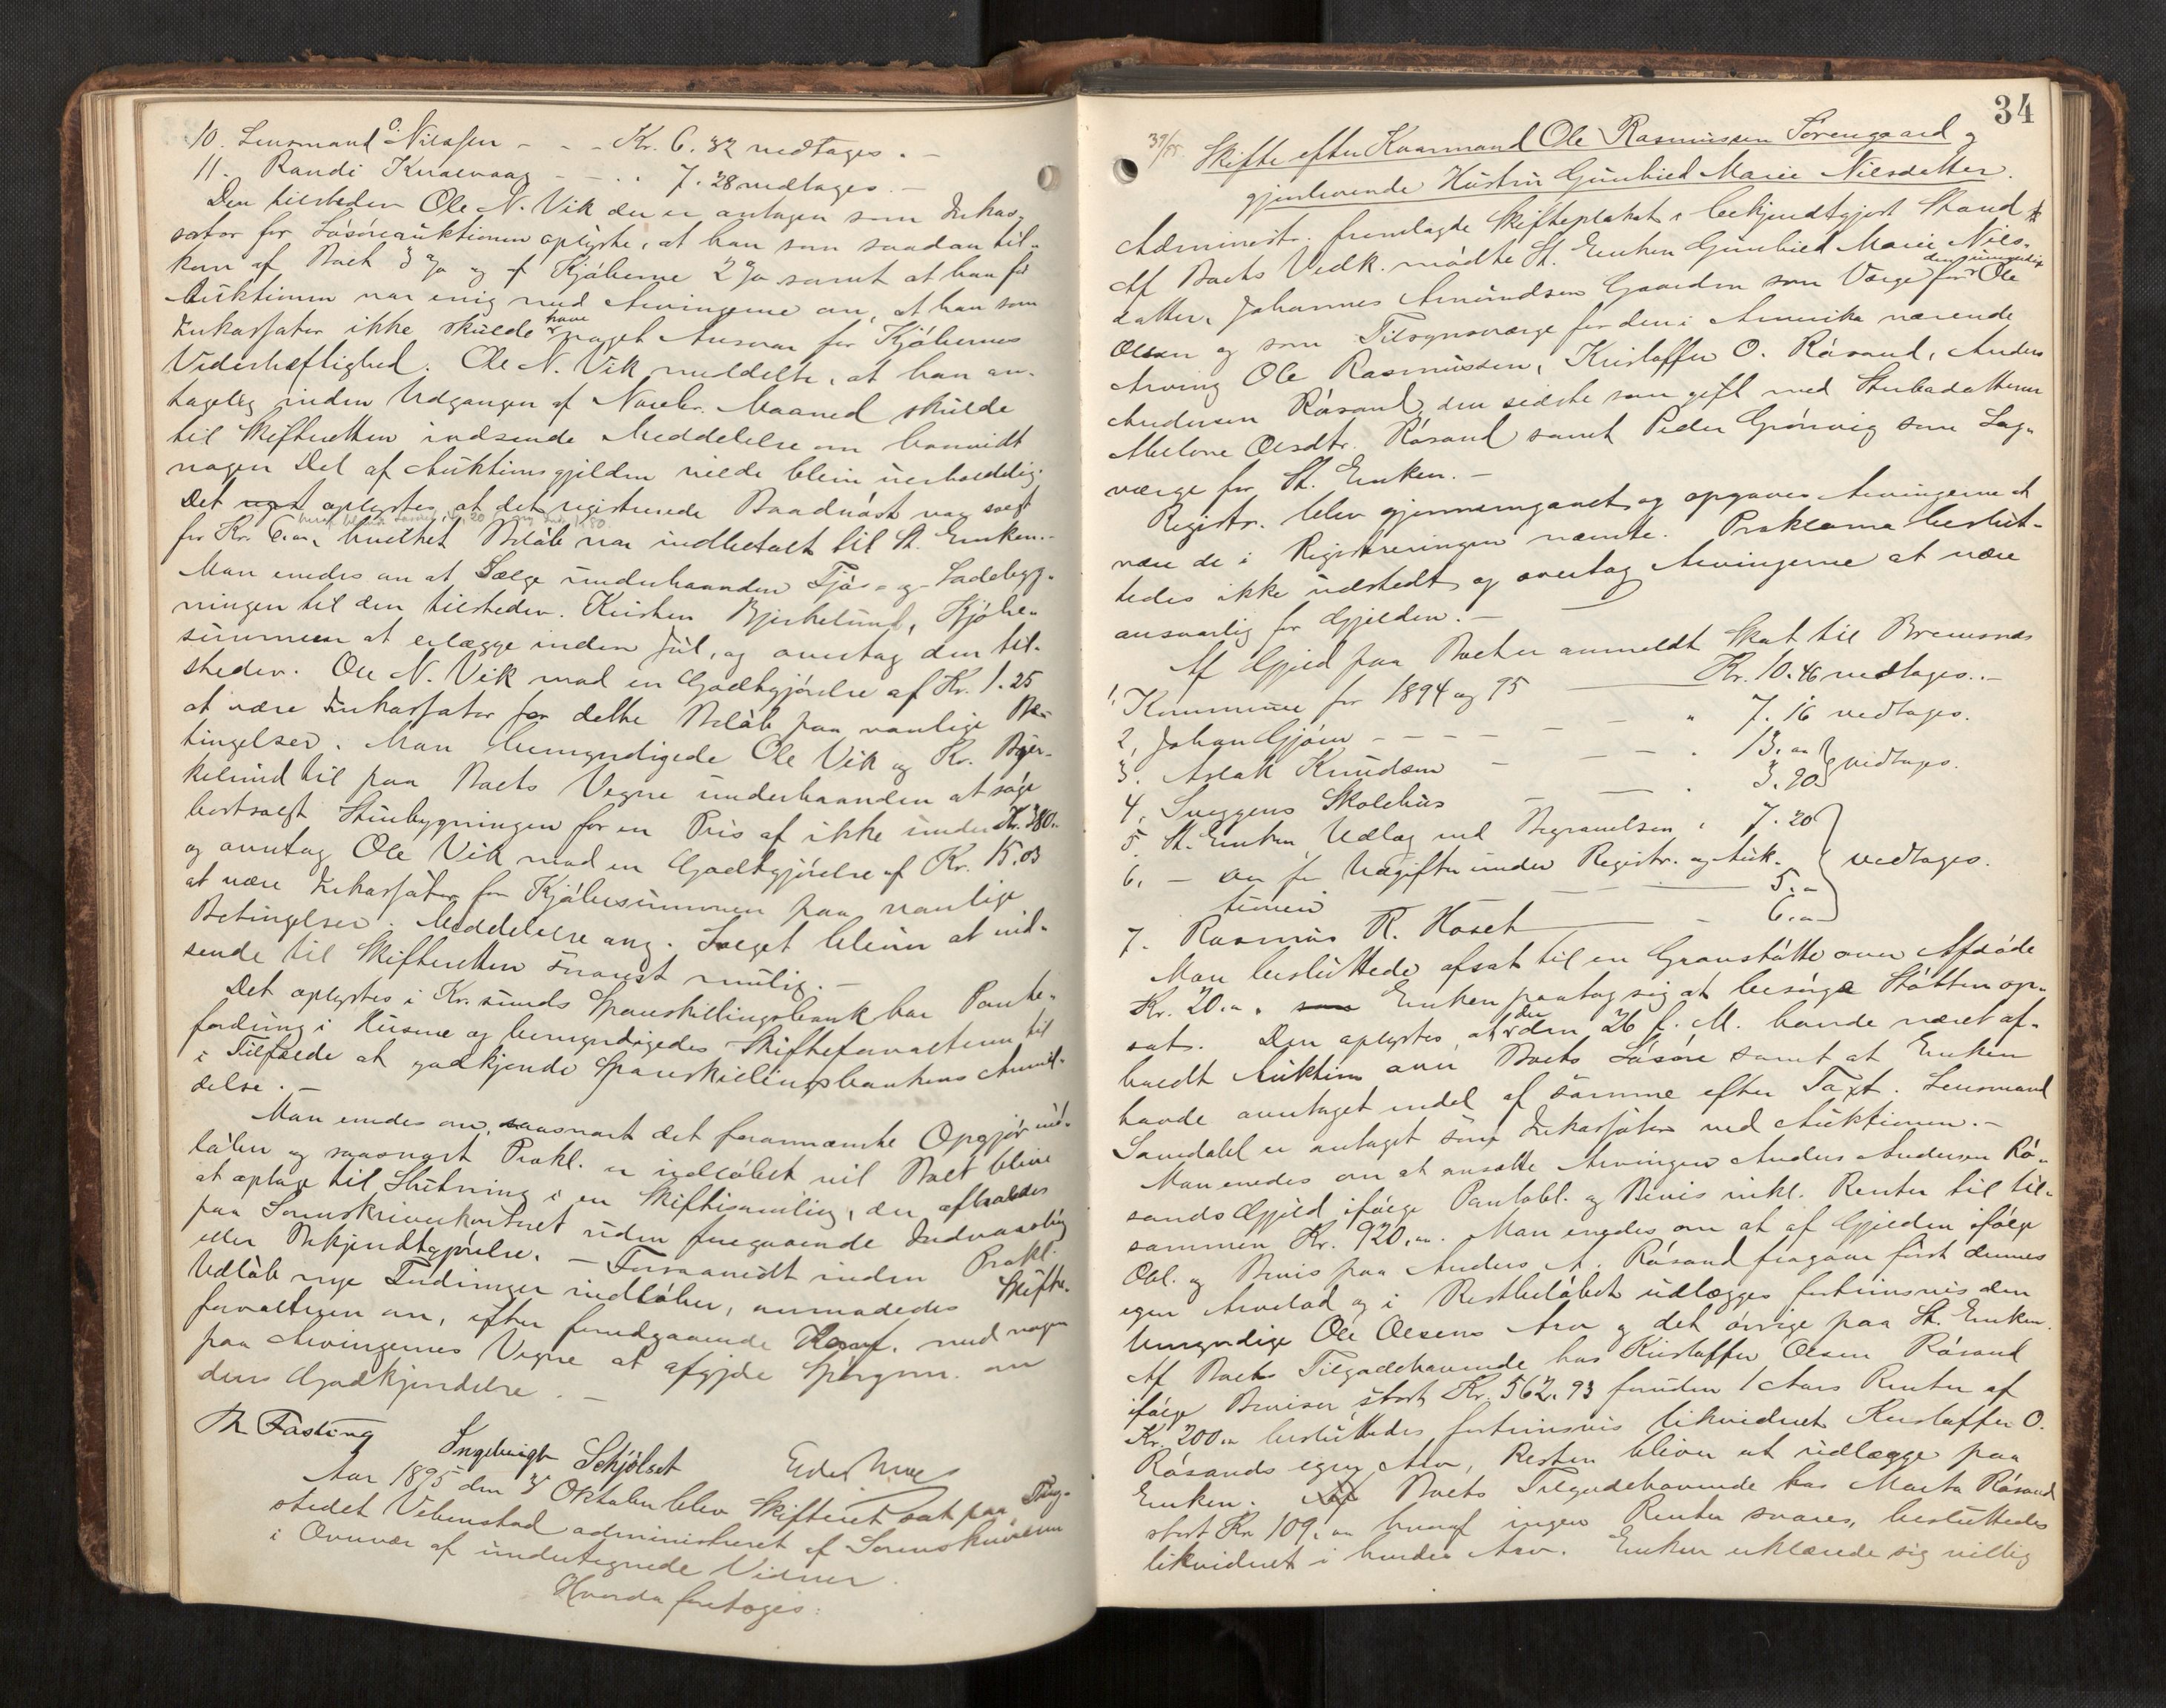 10. Lensmand O. Nilssen - - - Kr. 6.32 vedtages. -
11. Randi Knævaag - - . . 7.28 vedtages. -
Den tilstedev. Ole N. Vik der er antagen som Inkas-
sator for Løsøreauktionen oplyste, at han som saadan til-
kom af Boet 3 % og af Kjøberne 2 % samt at han før
Auktionen var enig med Arvingerne om, at han som
Inkassator ikke skulde have noget Ansvar for Kjøbernes
Vederhæftighed. Ole N. Vik meddelte, at han an-
tagelig inden Udgangen af Novebr. Maaned skulde
til Skifteretten indsende Meddelelse om hvorvidt
nogen Del af Auktionsgjælden vilde blive uerholdelig.
Det oplystes at det registrerede Baadnøst var solgt
for Kr. 6.00, hvilket Beløb var indbetalt til St. Enken. -
Man enedes om at Sælge underhaanden Fjøs- og Ladebyg-
ningen til den tilstedev. Kristen Bjerkelund, Kjøbe-
summen at erlægge inden Jul, og overtog den til-
stedev. Ole N. Vik mod en Godtgjørelse af Kr. 1.25
at være Inkassator for dette Beløb paa vanlige Be-
tingelser. Man bemyndigede Ole Vik og Kr. Bjer-
kelund til paa Boets Vegne underhaanden at søge
bortsolgt Stuebygningen for en Pris af ikke under Kr. 380.
og overtog Ole Vik mod en Godtgjørelse af Kr. 15.03
at være Inkassator for Kjøbesummen paa vanlige
Betingelser. Meddelelse ang. Salget bliver at ind-
sende til Skifteretten snarest mulig. -
Det oplystes i Kr.sunds Spareskillingsbank har Pante-
fordring i Husene og bemyndigedes Skifteforvalteren til
i Tilfælde at godkjende Spareskillingsbankens Anmel-
delse. -
Man enedes om, saasnart det forannævnte Opgjør ind-
løber og saasnart Prokl. er indløbet vil Boet blive
at optage til Slutning i en Skiftesamling, der afholdes
paa Sorenskriverkontoret uden foregaaende Indvarsling
eller Bekjendtgjørelse. - Forsaavidt inden Prokl.
Udløb nye Fordringer indløber, anmodedes Skifte-
forvalteren om, efter forudgaaende Konf. med nogen
paa Arvingernes Vegne at afgjøre Spørgsm. om
dens Godkjendelse. -
Th. Fasting Ingebrigt Schjølset
Aar 1895 den 3 Oktober blev Skifteret sat paa Thing-
stedet Vebenstad administreret af Sorenskriveren
i Overvær af undertegnede Vidner.
Hvorda foretoges:
34
Skifte efter Kaarmand Ole Rasmussen Sørengaard og
gjenlevende Hustru Gunhild Marie Nilsdatter.
Administr. fremlagde Skifteplakat i bekjendtgjort Stand
Af Boets Vedk. mødte St. Enken Gunhild Marie Nils-
datter, Johannes Amundsen Gaarden som Værge for den umyndige Ole
Olsen og som Tilsynsværge for den i Amerika værende
Arving Ole Rasmussen, Kristoffer O. Røsand, Anders
Andersen Røsand, den sidste som gift med Sterbodatteren
Olsdtr. Røsand samt Peder Grønvig som Lag-
værge for St. Enken. -
Registr. blev gjennemgaaet og opgaves Arvingerne at
være de i Registreringen nævnte. Proklama beslut-
tedes ikke udstedt og overtog Arvingerne at være
ansvarlig for Gjælden. -
Af Gjæld paa Boet er anmeldt Skat til Bremsnes
1. Kommune for 1894 og 95 Kr. 10.46 vedtages. -
2, Johan Gjøen - - - - - " 7.16 vedtages.
3. Aslak Knudsen - - . 13.00
4, Sveggens Skolehus - - . 3.90 vedtages.
5. St. Enken, Udlæg ved Begravelsen . 7.20
6. - for Udgifter under Registr. og Auk-
tionen - - - 5.00 vedtages.
7. Rasmus R. Hoset - 6.00
Man besluttede afsat til en Gravstøtte over Afdøde
Kr. 20.00, Enken paatog sig at besørge Støtten op-
sat. Den oplystes, at der den 26 f. M. havde været af-
holdt Auktion over Boets Løsøre samt at Enken
havde overtaget endel af samme efter Taxt. Lensmand
Sandahl er antaget som Inkassator ved Auktionen. -
Man enedes om at ansætte Arvingen Anders Andersen Rø-
sands Gjæld ifølge Pantobl. og Bevis inkl. Renter til til-
sammen Kr. 920.00. Man enedes om at af Gjælden ifølge
Obl. og Bevis paa Anders A. Røsand fragaar først dennes
egen Arvelod og i Restbeløbet udlægges fortrinsvis den
Umyndige Ole Olsens Arv og det øvrige paa St. Enken.
Af Boets Tilgodehavende hos Kristoffer Olsen Røsand
ifølge Beviser stort Kr. 562.93 foruden 1 Aars Renter af
Kr. 200.00 besluttedes fortrinsvis likvideret Kristoffer O.
Røsands egen Arv, Resten bliver at udlægge paa
Enken. Boets Tilgodehavende hos Marta Røsand
stort Kr. 109.00 hvoraf ingen Renter svares, besluttedes
likvideret i hendes Arv. Enken erklærede sig villig